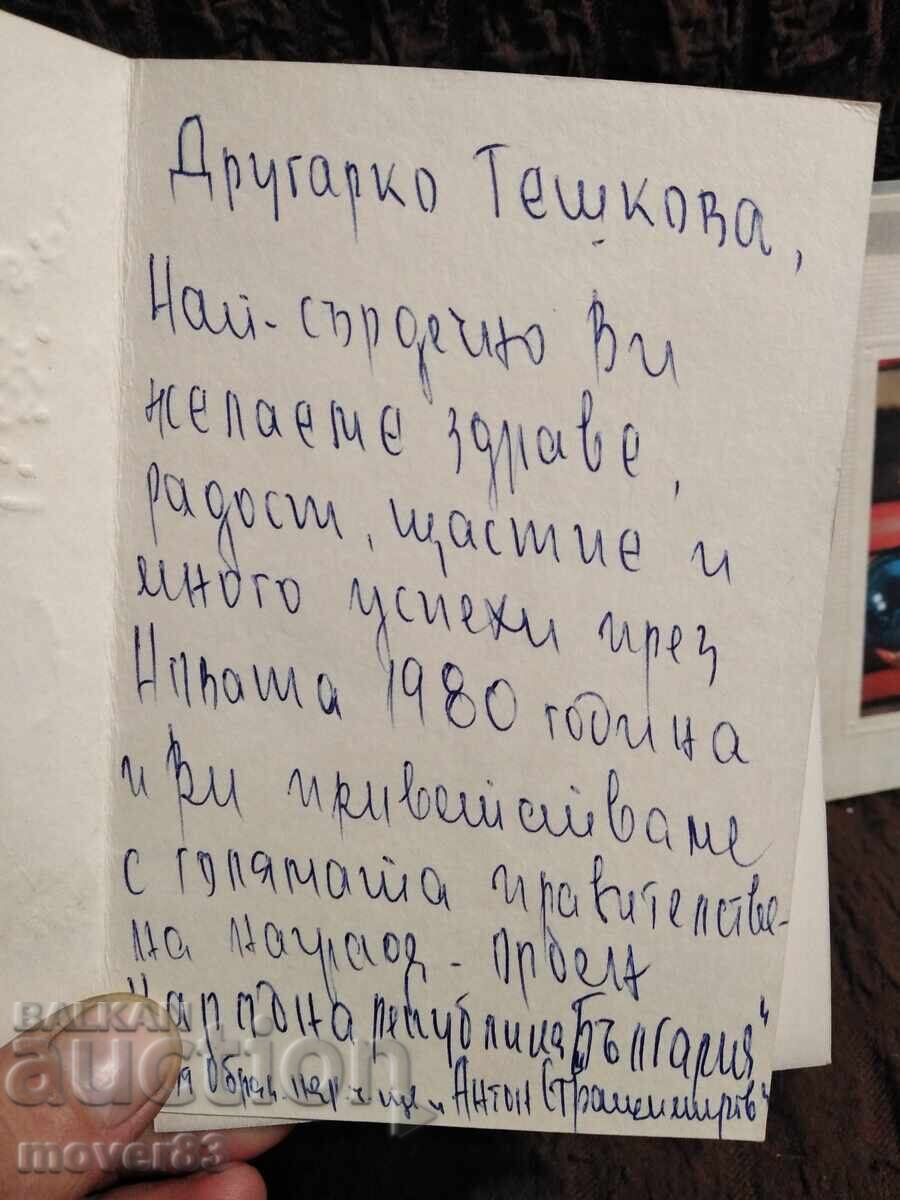 Другарко Тешкова,
Най-сърдечно Ви
желаеме здраве,
радост, щастие и
много успехи през
Новата 1980 година
и Ви приветстваме
с голямата правителстве-
на награда - орден
Народна република България"
"Антон Страшимиров"
BALKAN
auction
mover83